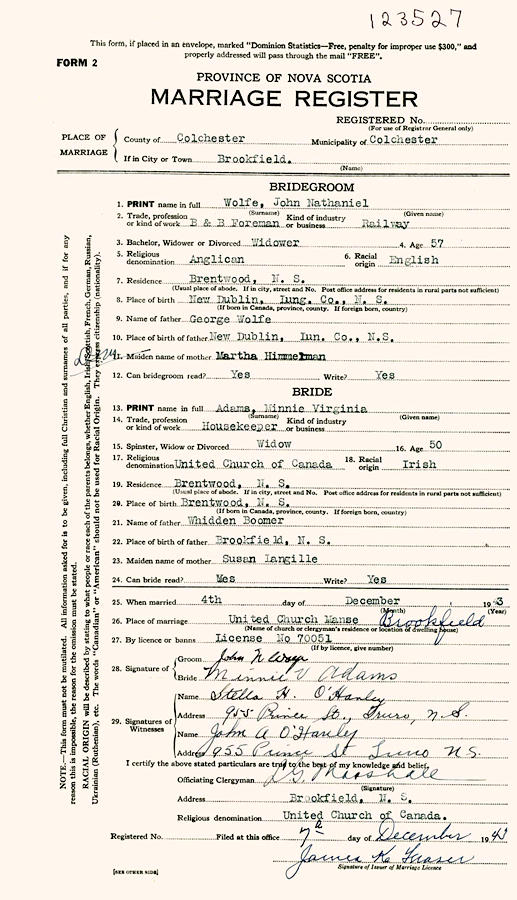 123527
This form, if placed in an envelope, marked "Dominion Statistics—Free, penalty for improper use $300," and
properly addressed will pass through the mail "FREE".
FORM 2
PROVINCE OF NOVA SCOTIA
MARRIAGE REGISTER
REGISTERED No.
(For use of Registrar General only)
PLACE OF MARRIAGE
County of Colchester Municipality of Colchester
If in City or Town Brookfield.
(Name)
BRIDEGROOM
1. PRINT name in full Wolfe, John Nathaniel
(Surname) (Given name)
2. Trade, profession or kind of work B & B Foreman Kind of industry or business Railway
3. Bachelor, Widower or Divorced Widower 4. Age 57
5. Religious denomination Anglican 6. Racial origin English
7. Residence Brentwood, N. S.
(Usual place of abode. If in city, street and No. Post office address for residents in rural parts not sufficient)
8. Place of birth New Dublin, Lung. Co., N. S.
(If born in Canada, province, county. If foreign born, country)
9. Name of father George Wolfe
10. Place of birth of father New Dublin, Lun. Co., N.S.
11. Maiden name of mother Martha Himmelman
12. Can bridegroom read? Yes Write? Yes
BRIDE
13. PRINT name in full Adams, Minnie Virginia
(Surname) (Given name)
14. Trade, profession or kind of work Housekeeper Kind of industry or business
15. Spinster, Widow or Divorced Widow 16. Age 50
17. Religious denomination United Church of Canada 18. Racial origin Irish
19. Residence Brentwood, N. S.
(Usual place of abode. If in city, street and No. Post office address for residents in rural parts not sufficient)
20. Place of birth Brentwood, N. S.
(If born in Canada, province, county. If foreign born, country)
21. Name of father Whidden Boomer
22. Place of birth of father Brookfield, N. S.
23. Maiden name of mother Susan Langille
24. Can bride read? Mes Write? Yes
25. When married 4th day of December 1943
(Month) (Year)
26. Place of marriage United Church Manse Brookfield
(Name of church or clergyman's residence or location of dwelling house)
27. By licence or banns License No 70051
(If by licence, give number)
28. Signature of
Groom John N
Bride Minnie V Adams
29. Signatures of Witnesses
Name Stella H. O'Hanley
Address 955 Prince St., Truro, N.S.
Name John A O'Hanley
Address 955 Prince St Truro N.S.
I certify the above stated particulars are true to the best of my knowledge and belief.
Officiating Clergyman Marshall
(Signature)
Address Brookfield, N. S.
Religious denomination United Church of Canada.
Registered No. Filed at this office 7th day of December 1943
James K. Fraser
Signature of Issuer of Marriage Licence
[SEE OTHER SIDE]
NOTE.—This form must not be mutilated. All information asked for is to be given, including full Christian and surnames of all parties, and if for any
reason this is impossible, the reason for the omission must be stated.
RACIAL ORIGIN will be described by stating to what people or race each of the parents belongs, whether English, Irish, Scottish, French, German, Russian,
Ukrainian (Ruthenian), etc. The words "Canadian" or "American" should not be used for Racial Origin. They express citizenship (nationality).